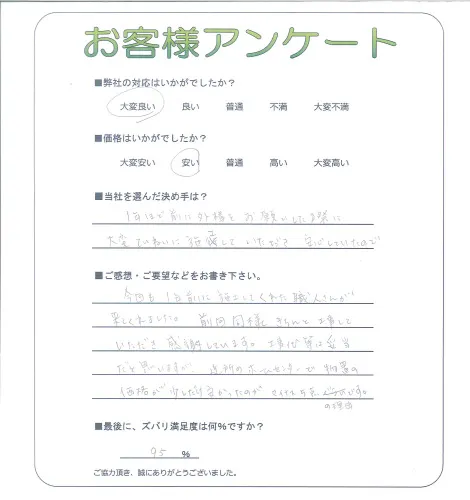 お客様アンケート
■弊社の対応はいかがでしたか？
大変良い 良い 普通 不満 大変不満
■価格はいかがでしたか？
大変安い 安い 普通 高い 大変高い
■当社を選んだ決め手は？
1年ほど前に外構をお願いした際に
大変ていねいに施工していただき 安心していたので
■ご感想・ご要望などをお書き下さい。
今回も1年前に施工してくれた職人さんが
来てくれました。前回同様きちんと工事して
いただき感謝しています。工事代等は妥当
だと思いますが、近所のホームセンターで物置の
価格が少しだけ安かったのが
の理由
■最後に、ズバリ満足度は何%ですか？
95 %
ご協力頂き、誠にありがとうございました。